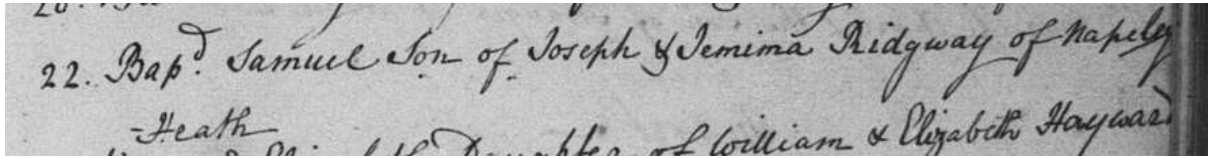 22. Bapd. Samuel Son of Joseph & Jemima Ridgway of Napeley
-Heath
Daughter of William & Elizabeth Hayward